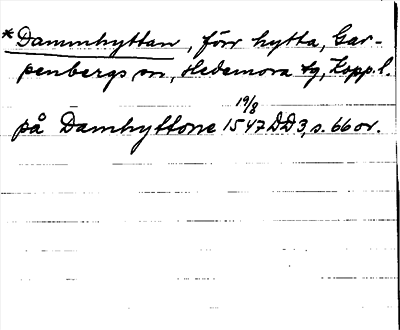 *Dammhyttan, förr hytta, Gar-
penbergs sn, Hedemora tg, Kopp. l.
på Damhyttone 19/8 1547 DD3, s. 66 or.